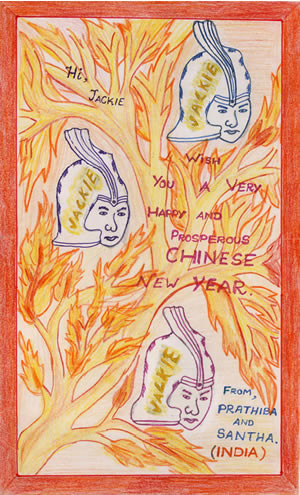 Hi,
JACKIE
JACKIE
JACKIE
WISH
YOU A VERY
HAPPY AND
PROSPEROUS
CHINESE
NEW YEAR.
JACKIE
FROM,
PRATHIBA
AND
SANTHA.
(INDIA)